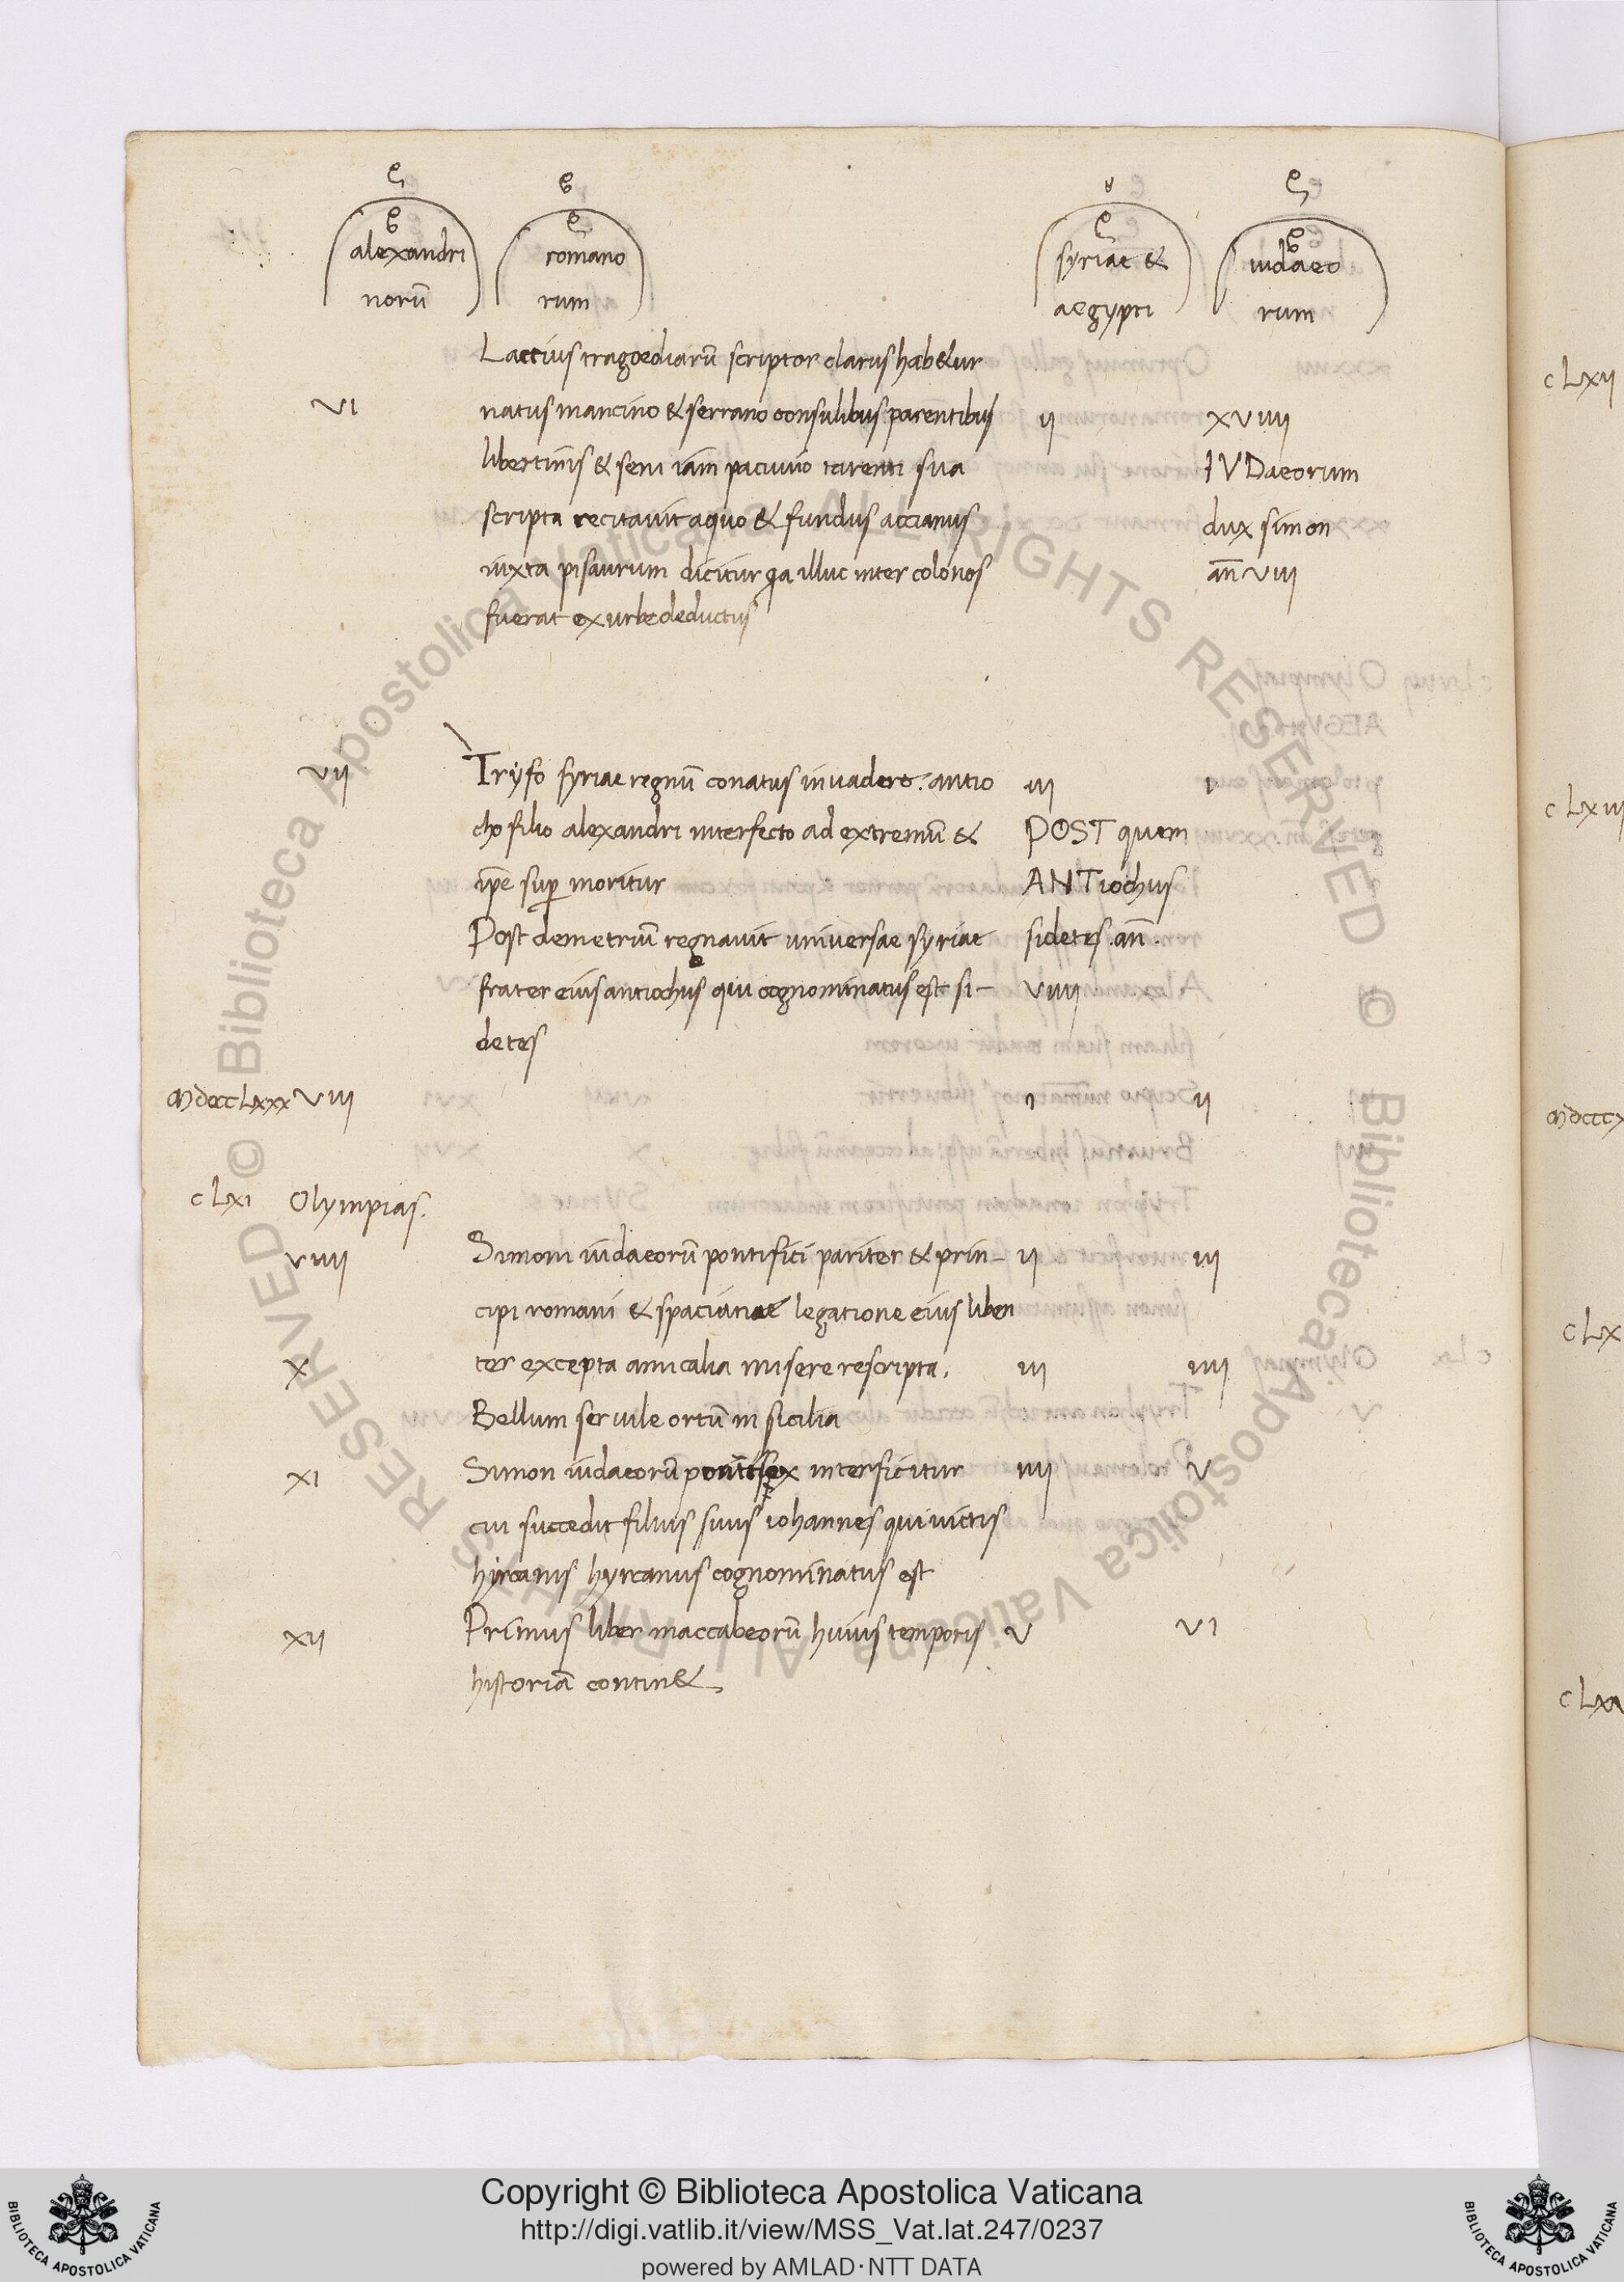 alexandri
norū
romano
rum
syriae &
aegypti
iudaeo
rum
Lactius tragoediarū scriptor clarus hab&ur
VI natus mancino & serrano consulibus parentibus II XVIIII
libertinis & seni iam pacuuio tarenti sua IVDaeorum
scripta recitauit aquo & fundus accianus dux simon
iuxta pisaurum dicitur qa illuc inter colonos an̄ VIII
fuerat ex urbe deductus
VII Tryfo syriae regnū conatus inuadere. antio III I
cho filio alexandri interfecto ad extremū & POST quem
ipe sup moritur ANTiochus
Post demetriū regnauit uniuersae syriae sidetes. an̄.
frater eius antiochus qui cognominatus est si- VIIII
detes
MdcccLxxx VIII I II
cLxi Olympias.
VIIII Simoni iudaeorū pontifici pariter & prin- II III
cipi romani & spaciatae legatione eius liben
X ter excepta amicalia misere rescripta. III IIII
Bellum seruile ortū in sicilia
XI Simon iudaeorū pontifex interficitur IIII V
cui succedit filius suus iohannes qui uictis
hircanis hyrcanus cognominatus est
XII Primus liber maccabeorū huius temporis V VI
historiā contin&
cLxii
cLxiii
Mdcccx
cLx
cLxv
© Biblioteca Apostolica Vaticana ALL RIGHTS RESERVED © Biblioteca Apostolica Vaticana ALL RIGHTS RESERVED
Copyright © Biblioteca Apostolica Vaticana
http://digi.vatlib.it/view/MSS_Vat.lat.247/0237
powered by AMLAD·NTT DATA
BIBLIOTECA APOSTOLICA VATICANA
BIBLIOTECA APOSTOLICA VATICANA